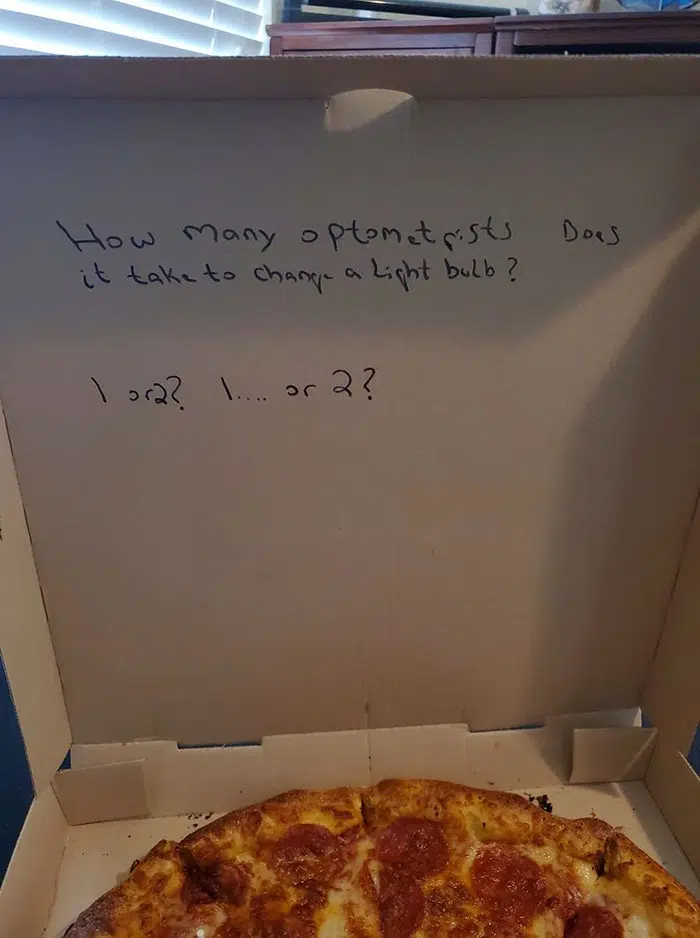 How many optometrists Does
it take to change a Light bulb?
1 or 2? 1.... or 2?